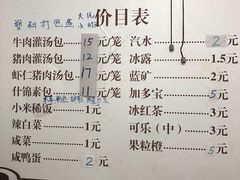 塑料打包盒 大
价目表
牛肉灌汤包 15 元/笼
猪肉灌汤包 12 元/笼
虾仁猪肉汤包 17 元/笼
什锦素包 11 元/笼
小米稀饭 1元
辣白菜 1元
咸菜 1元
咸鸭蛋 2元
汽水 2元
冰露 1.5元
蓝矿 2元
加多宝 5元
冰红茶 3元
可乐（中） 3元
果粒橙 5元